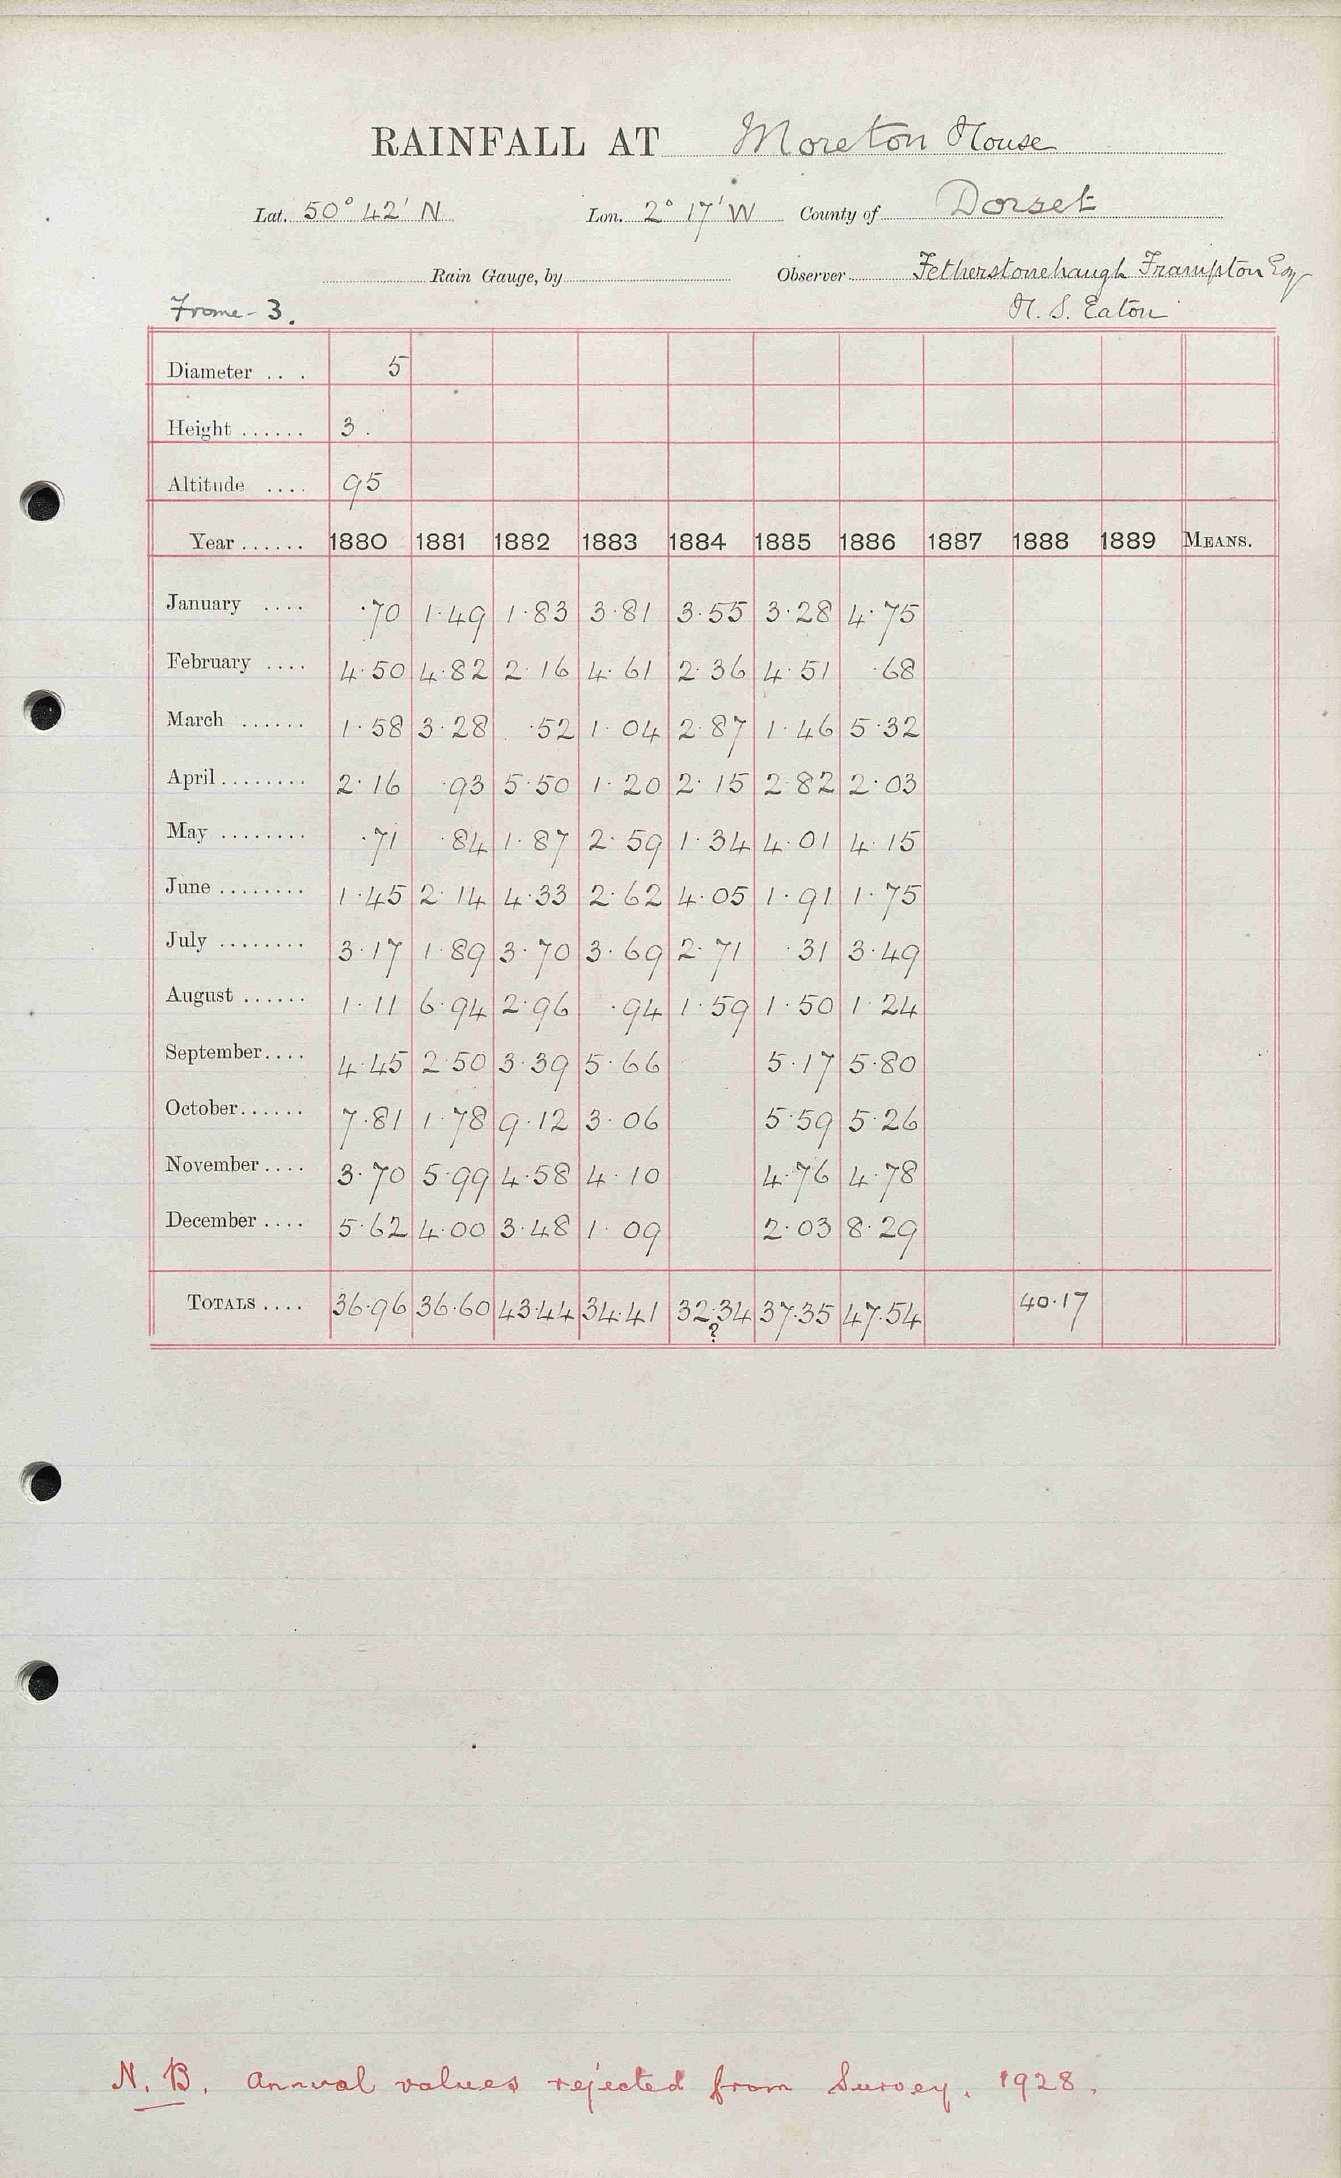 RAINFALL AT Moreton House
Lat. 50° 42' N Lon. 2° 17' W County of Dorset
Rain Gauge, by Observer Fetherstonehaugh Frampton Esq
Frome - 3. H. S. Eaton
Diameter ... 5
Height ...... 3.
Altitude .... 95
Year ...... 1880 1881 1882 1883 1884 1885 1886 1887 1888 1889 MEANS.
January .... ·70 1·49 1·83 3·81 3·55 3·28 4·75
February .... 4·50 4·82 2·16 4·61 2·36 4·51 ·68
March ...... 1·58 3·28 ·52 1·04 2·87 1·46 5·32
April ........ 2·16 ·93 5·50 1·20 2·15 2·82 2·03
May ........ ·71 ·84 1·87 2·59 1·34 4·01 4·15
June ........ 1·45 2·14 4·33 2·62 4·05 1·91 1·75
July ........ 3·17 1·89 3·70 3·69 2·71 ·31 3·49
August ...... 1·11 6·94 2·96 ·94 1·59 1·50 1·24
September.... 4·45 2·50 3·39 5·66 5·17 5·80
October...... 7·81 1·78 9·12 3·06 5·59 5·26
November .... 3·70 5·99 4·58 4·10 4·76 4·78
December .... 5·62 4·00 3·48 1·09 2·03 8·29
TOTALS .... 36·96 36·60 43·44 34·41 32·34 37·35 47·54 40·17
?
N. B. Annual values rejected from Survey. 1928.